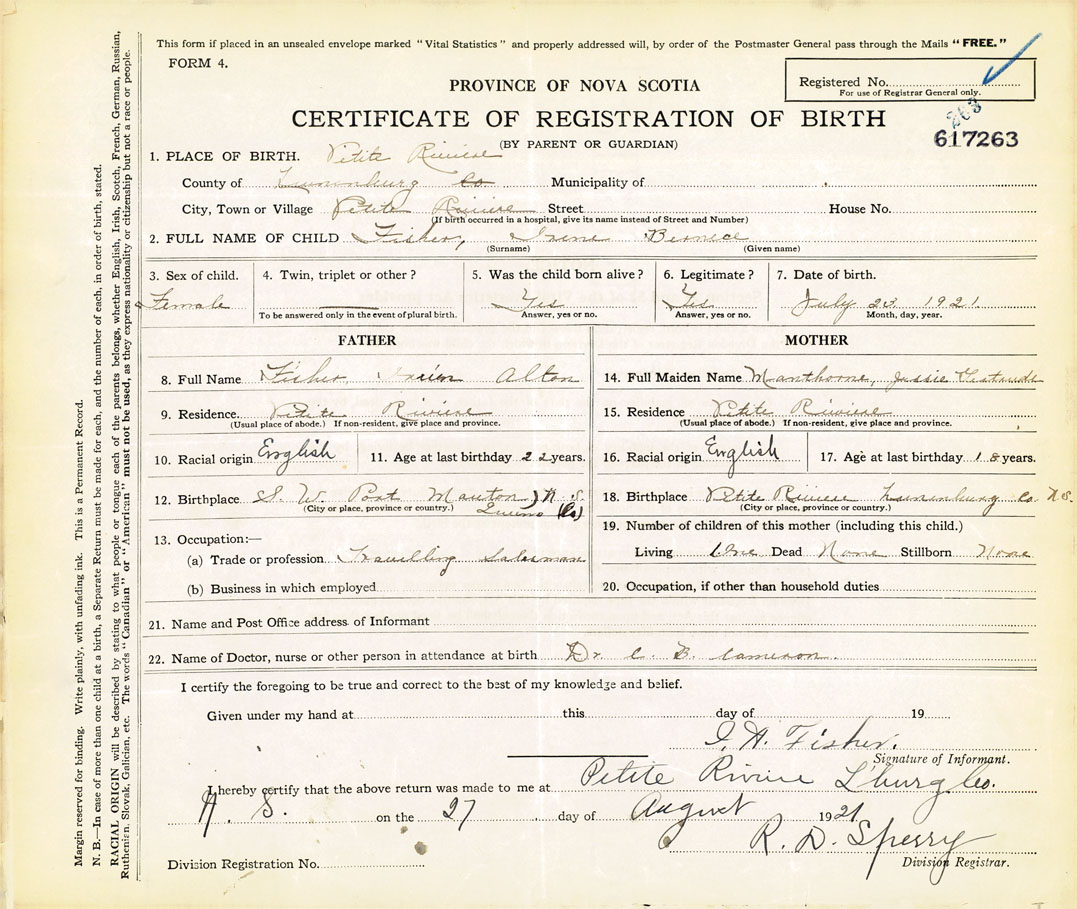 This form if placed in an unsealed envelope marked "Vital Statistics" and properly addressed will, by order of the Postmaster General pass through the Mails "FREE."
FORM 4.
Registered No.
For use of Registrar General only.
263
617263
PROVINCE OF NOVA SCOTIA
CERTIFICATE OF REGISTRATION OF BIRTH
(BY PARENT OR GUARDIAN)
1. PLACE OF BIRTH. Petite Riviere
County of Lunenburg Co Municipality of
City, Town or Village Petite Riviere Street House No.
(If birth occurred in a hospital, give its name instead of Street and Number)
2. FULL NAME OF CHILD Fisher, Irene Bernece
(Surname) (Given name)
3. Sex of child. 4. Twin, triplet or other? 5. Was the child born alive? 6. Legitimate? 7. Date of birth.
Female Yes Yes July 23 1921
To be answered only in the event of plural birth. Answer, yes or no. Answer, yes or no. Month, day, year.
FATHER
8. Full Name Fisher Alton
9. Residence. Petite Riviere
(Usual place of abode.) If non-resident, give place and province.
10. Racial origin English 11. Age at last birthday 22 years.
12. Birthplace S. W. Port Mouton, N. S.
(City or place, province or country.) (Co)
13. Occupation:—
(a) Trade or profession Travelling Salesman
(b) Business in which employed
MOTHER
14. Full Maiden Name Manthorne, Jessie
15. Residence Petite Riviere
(Usual place of abode.) If non-resident, give place and province.
16. Racial origin English 17. Age at last birthday 18 years.
18. Birthplace Petite Riviere Lunenburg Co N.S.
(City or place, province or country.)
19. Number of children of this mother (including this child.)
Living One Dead None Stillborn None
20. Occupation, if other than household duties
21. Name and Post Office address of Informant
22. Name of Doctor, nurse or other person in attendance at birth Dr C. B. Cameron.
I certify the foregoing to be true and correct to the best of my knowledge and belief.
Given under my hand at this day of 19
I. A. Fisher.
Signature of Informant.
I hereby certify that the above return was made to me at Petite Riviere L'burg Co.
N. S. on the 27 day of August 1921
R. D. Sperry
Division Registration No. Division Registrar.
Margin reserved for binding. Write plainly, with unfading ink. This is a Permanent Record.
N. B.—In case of more than one child at a birth, a Separate Return must be made for each, and the number of each, in order of birth, stated.
RACIAL ORIGIN will be described by stating to what people or tongue each of the parents belongs, whether English, Irish, Scotch, French, German, Russian,
Ruthenian, Slovak, Galician, etc. The words "Canadian" or "American" must not be used, as they express nationality or citizenship but not a race or people.